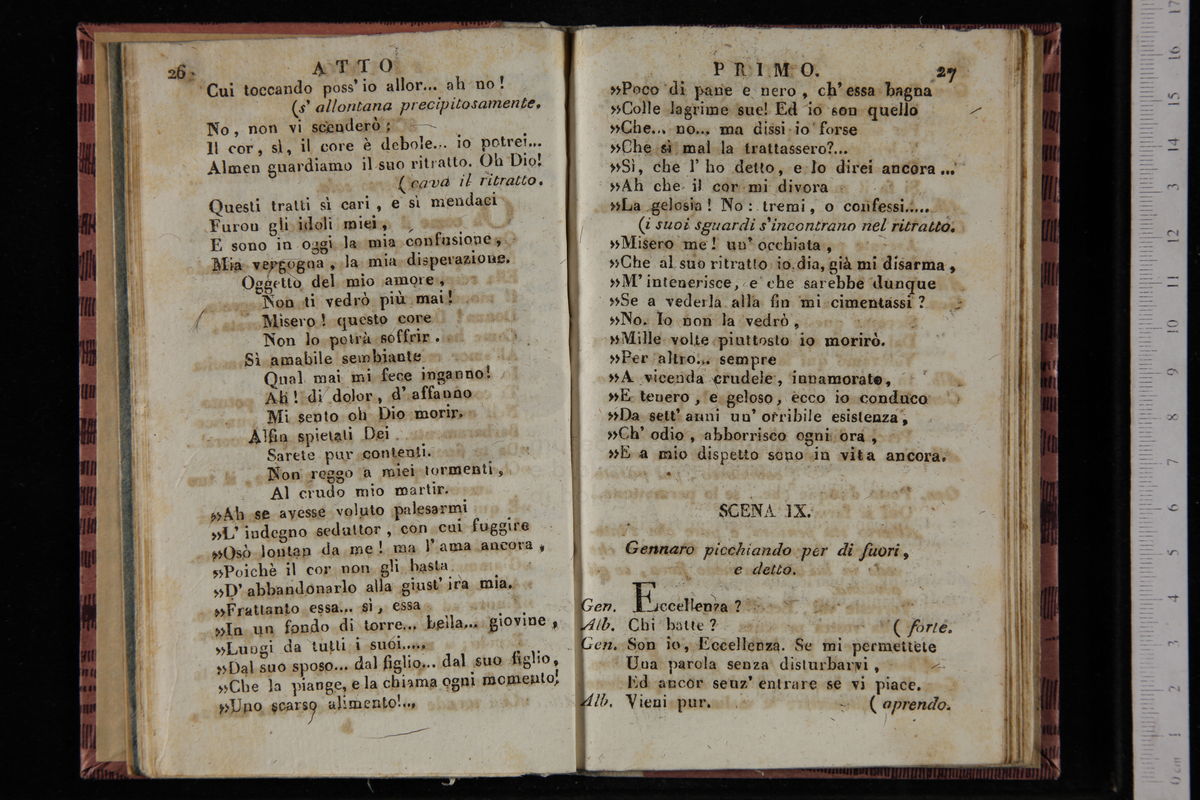 26.
ATTO
Cui toccando poss' io allor... ah no!
(s' allontana precipitosamente.
No, non vi scenderò:
Il cor, sì, il core è debole... io potrei...
Almen guardiamo il suo ritratto. Oh Dio!
(cava il ritratto.
Questi tratti sì cari, e sì mendaci
Furon gli idoli miei,
E sono in oggi la mia confusione,
Mia vergogna, la mia disperazione.
Oggetto del mio amore,
Non ti vedrò più mai!
Misero! questo core
Non lo potrà soffrir.
Sì amabile sembiante
Qual mai mi fece inganno!
Ah! di dolor, d' affanno
Mi sento oh Dio morir.
Alfin spietati Dei
Sarete pur contenti.
Non reggo a miei tormenti,
Al crudo mio martir.
»Ah se avesse voluto palesarmi
»L' indegno seduttor, con cui fuggire
»Osò lontan da me! ma l' ama ancora,
»Poichè il cor non gli basta
»D' abbandonarlo alla giust' ira mia.
»Frattanto essa... sì, essa
»In un fondo di torre... bella... giovine,
»Lungi da tutti i suoi.....
»Dal suo sposo... dal figlio... dal suo figlio,
»Che la piange, e la chiama ogni momento!
»Uno scarso alimento!...
PRIMO.
27
»Poco di pane e nero, ch' essa bagna
»Colle lagrime sue! Ed io son quello
»Che... no... ma dissi io forse
»Che sì mal la trattassero?...
»Sì, che l' ho detto, e lo direi ancora...
»Ah che il cor mi divora
»La gelosia! No: tremi, o confessi.....
(i suoi sguardi s'incontrano nel ritratto.
»Misero me! un' occhiata,
»Che al suo ritratto io dia, già mi disarma,
»M' intenerisce, e che sarebbe dunque
»Se a vederla alla fin mi cimentassi?
»No. Io non la vedrò,
»Mille volte piuttosto io morirò.
»Per altro... sempre
»A vicenda crudele, innamorato,
»E tenero, e geloso, ecco io conduco
»Da sett' anni un' orribile esistenza,
»Ch' odio, abborrisco ogni ora,
»E a mio dispetto sono in vita ancora.
SCENA IX.
Gennaro picchiando per di fuori,
e detto.
Gen. Eccellenza?
Alb. Chi batte? (forte.
Gen. Son io, Eccellenza. Se mi permettete
Una parola senza disturbarvi,
Ed ancor senz' entrare se vi piace.
Alb. Vieni pur. (aprendo.